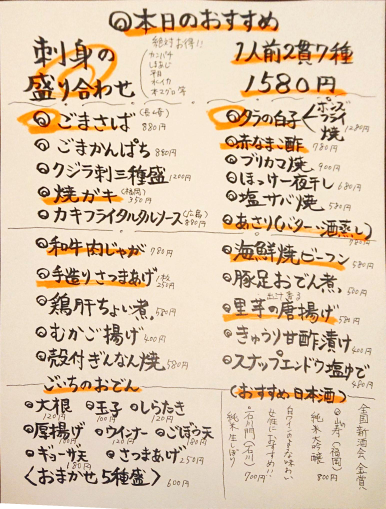 本日のおすすめ
刺身の
盛り合わせ
絶対お得!!
カンパチ
しまあじ
本マグロ 等
1人前2貫7種
1580円
ごまさば (長崎) 880円
ごまかんぱち 880円
クジラ刺三種盛 1200円
焼ガキ (福岡) 350円
カキフライタルタルソース (広島) 880円
タラの白子
ポンズ
フライ
焼 1280円
赤なまこ酢 780円
ブリカマ焼 900円
ほっけ一夜干し 680円
塩サバ焼 580円
あさり(バター・酒蒸し) 780円
和牛肉じゃが 780円
手造りさつまあげ 1枚 250円
鶏肝ちょい煮。 580円
むかご揚げ 400円
殻付ぎんなん焼 580円
海鮮焼ビーフン 580円
豚足おでん煮。 580円
里芋の唐揚げ 580円
きゅうり甘酢漬け 400円
スナップエンドウ塩ゆで 480円
ごいちのおでん
大根 120円 玉子 100円 しらたき 120円
厚揚げ 120円 ウインナー 120円 ごぼう天 180円
ギョーザ天 180円 さつまあげ 250円
〈おまかせ5種盛〉 600円
〈おすすめ日本酒〉
全国新酒会 金賞
(福岡)
純米大吟醸 800円
白ワインのような味わい
女性におすすめ!!
石川門 (石川)
純米生しぼり 700円